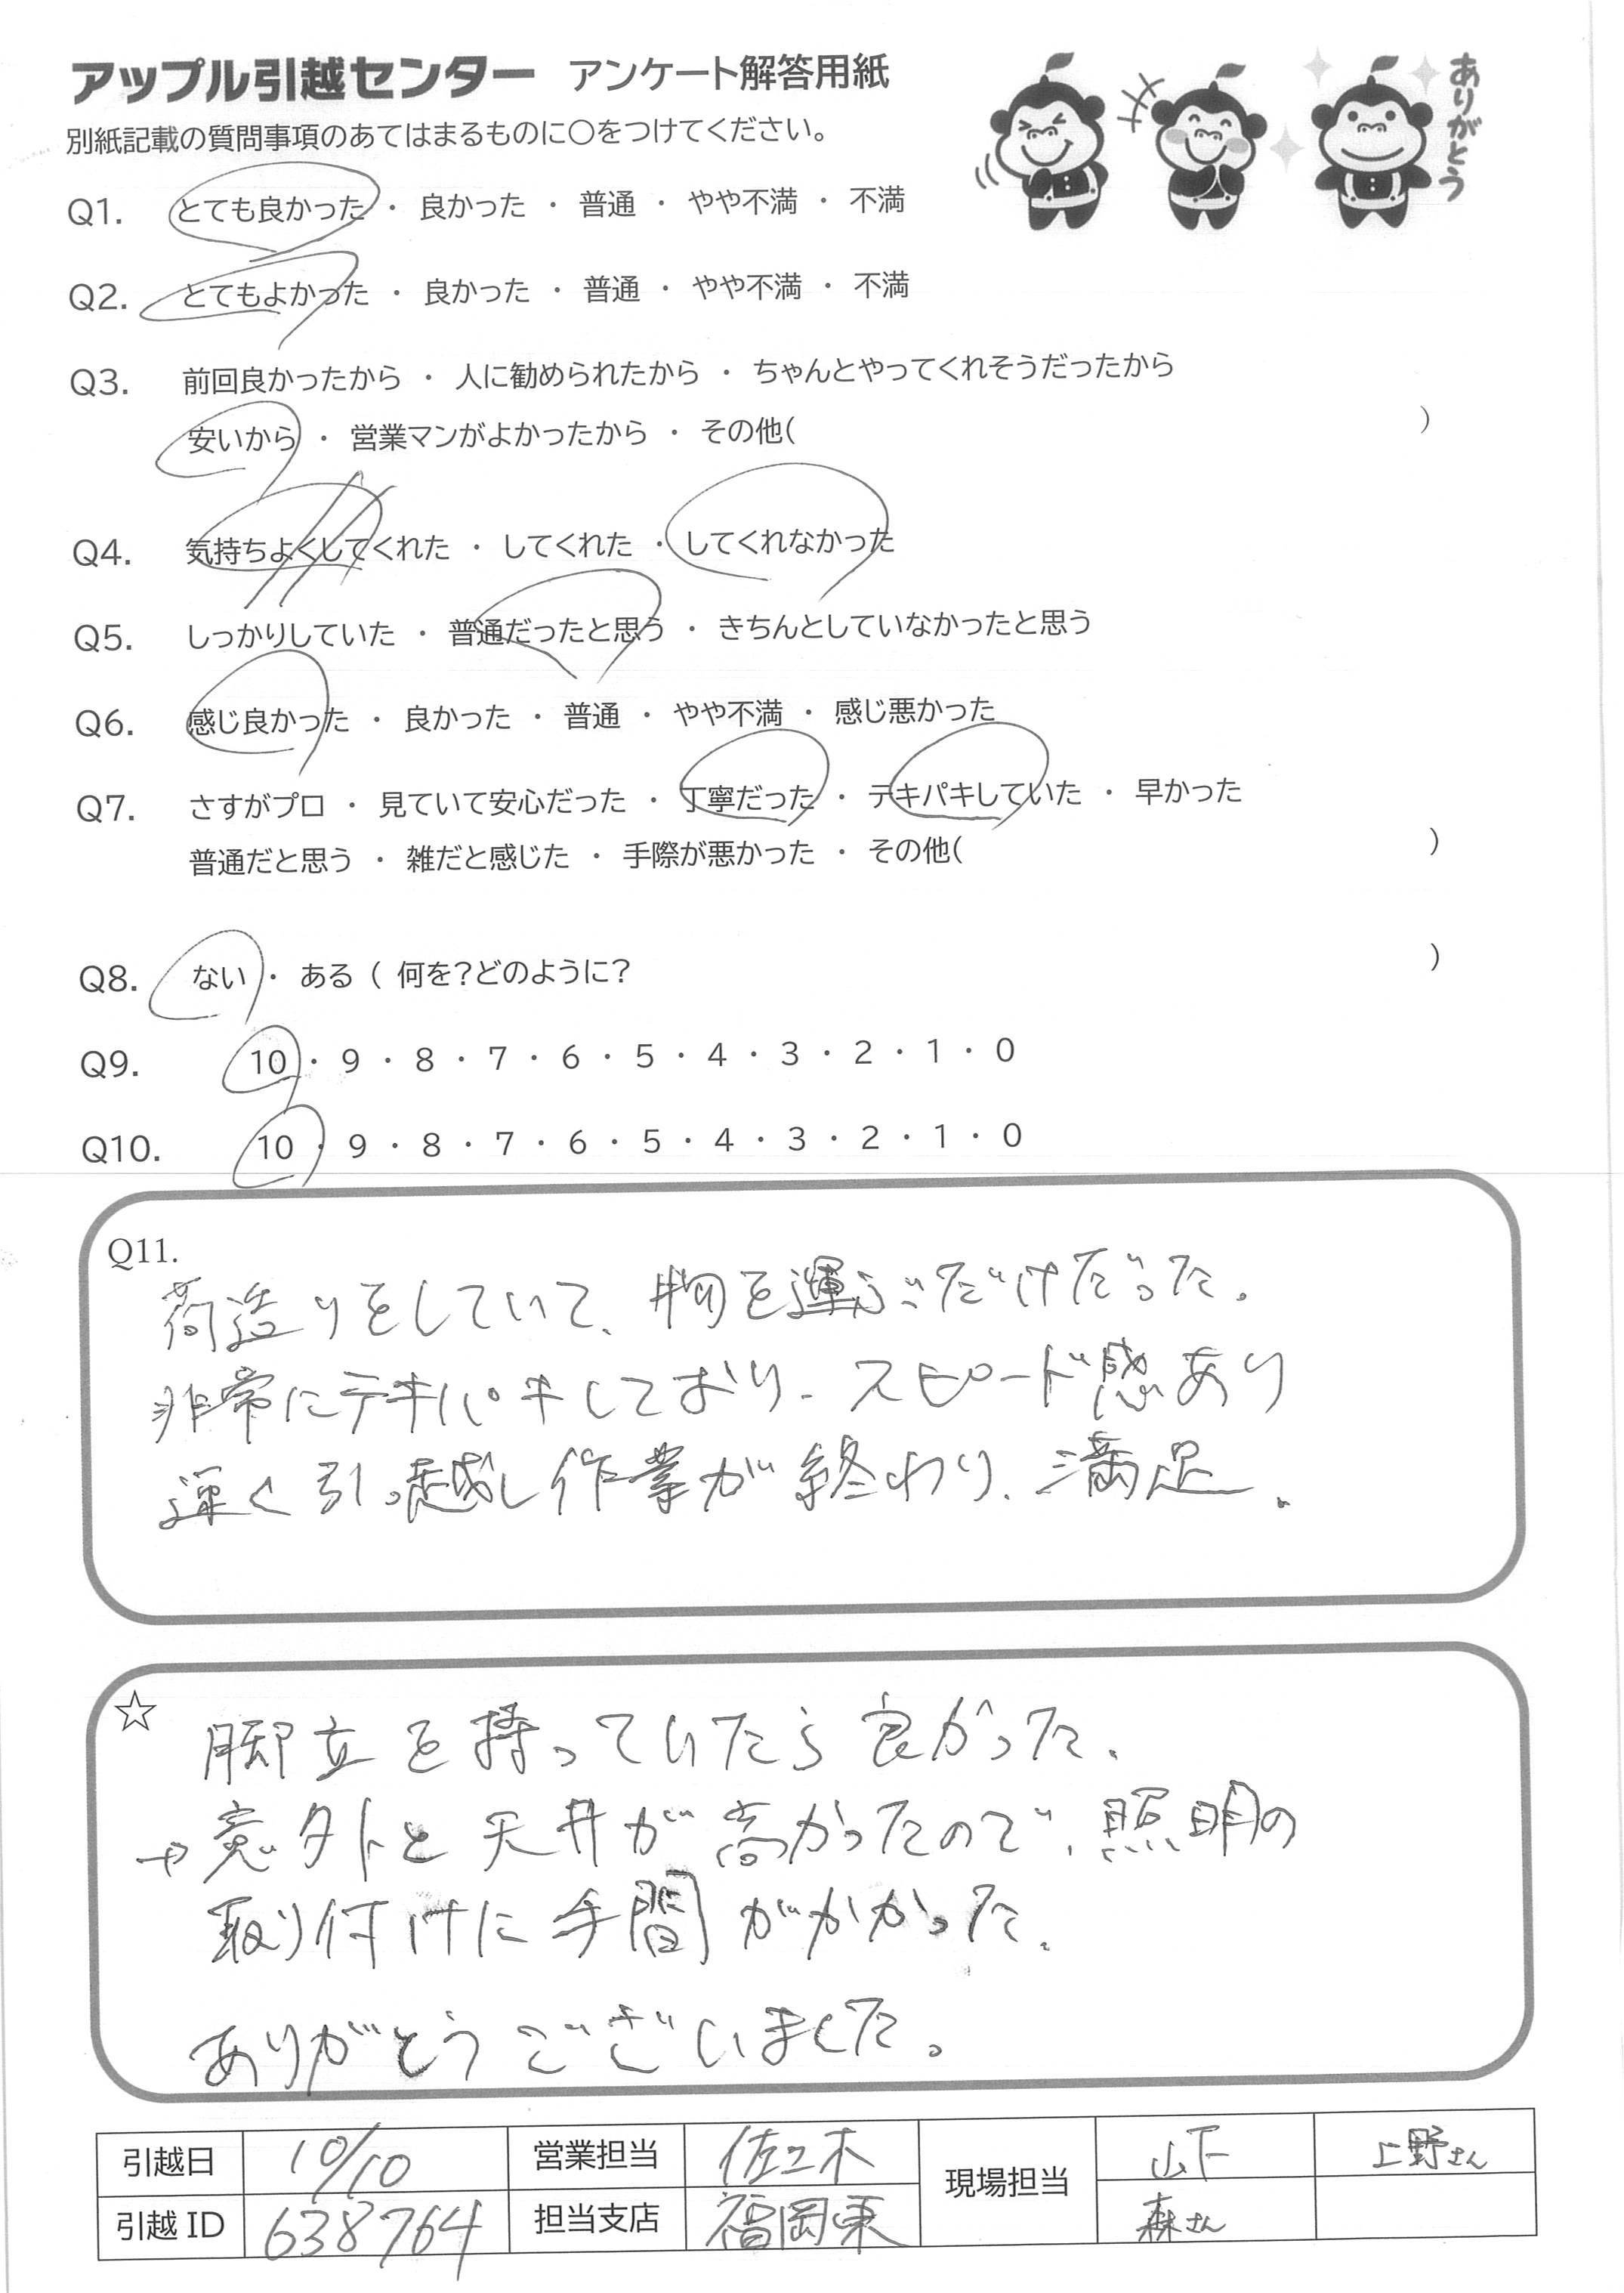 アップル引越センター アンケート解答用紙
別紙記載の質問事項のあてはまるものに〇をつけてください。
ありがとう
Q1. とても良かった ・ 良かった ・ 普通 ・ やや不満 ・ 不満
Q2. とてもよかった ・ 良かった ・ 普通 ・ やや不満 ・ 不満
Q3. 前回良かったから ・ 人に勧められたから ・ ちゃんとやってくれそうだったから
安いから ・ 営業マンがよかったから ・ その他( )
Q4. 気持ちよくしてくれた ・ してくれた ・ してくれなかった
Q5. しっかりしていた ・ 普通だったと思う ・ きちんとしていなかったと思う
Q6. 感じ良かった ・ 良かった ・ 普通 ・ やや不満 ・ 感じ悪かった
Q7. さすがプロ ・ 見ていて安心だった ・ 丁寧だった ・ テキパキしていた ・ 早かった
普通だと思う ・ 雑だと感じた ・ 手際が悪かった ・ その他( )
Q8. ない ・ ある ( 何を?どのように? )
Q9. 10 ・ 9 ・ 8 ・ 7 ・ 6 ・ 5 ・ 4 ・ 3 ・ 2 ・ 1 ・ 0
Q10. 10 ・ 9 ・ 8 ・ 7 ・ 6 ・ 5 ・ 4 ・ 3 ・ 2 ・ 1 ・ 0
Q11.
荷造りをしていて、物を運ぶだけだった。
非常にテキパキしており、スピード感あり
運く引っ越し作業が終わり、満足。
☆ 脚立を持っていたら良かった。
→意外と天井が高かったので、照明の
取り付けに手間がかかった。
ありがとうございました。
引越日 10/10 営業担当 佐々木 現場担当 山下 上野さん
引越ID 638764 担当支店 福岡東 森さん